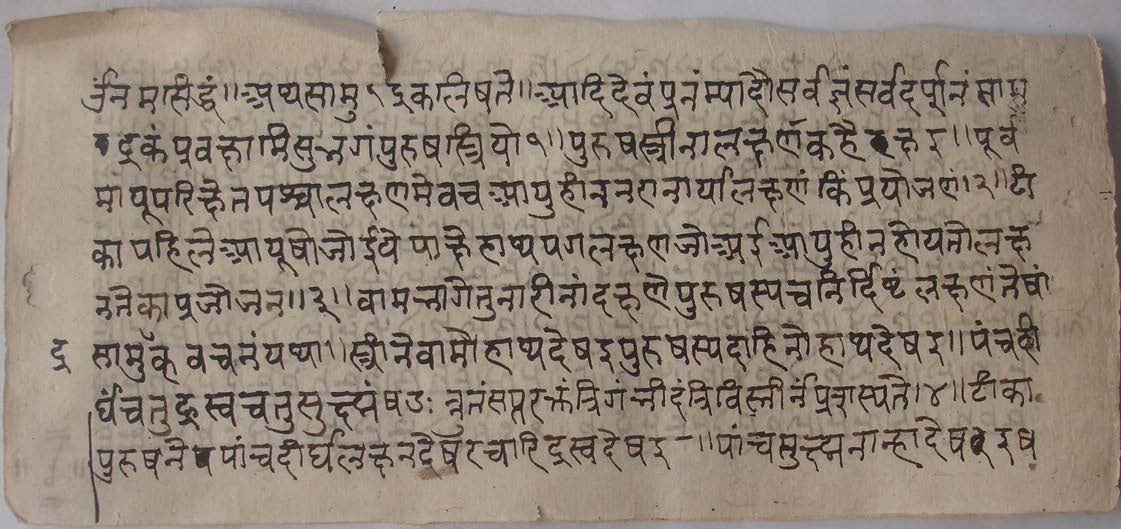 र्उनमासिद्धं॥अथसामुद्रकालिषते॥आदिदेवंपुनंम्यादौसर्वज्ञंसर्वदर्षानंसाम
द्रकंप्रवक्ष्यामिसुभगंपुरुषस्त्रियो१॥पुरुषस्त्रीनालक्षणकहैछइ॥पूर्व
मांयूपरिक्षेतपश्चाल्लक्षणमेवचआयुहीनंनराणनार्यालक्षणंकिंप्रयोजणं।२॥टी
कापहिलेआयूषोजोईयेपाछैहाथपगलक्षणजोअईआयुहीनहोयतोलक्ष
नतेकाप्रजोजन॥३॥वामभागेतुनारीनांदक्षणेपुरुषस्यचनिर्दिष्टंलक्षणंतेषां
सामुद्रकवचनंयथा॥स्त्रीनेवामोहाथदेषइपुरुषस्यदाहिनोहाथदेषइ॥पंचदी
र्घंचतुह्रस्वचतुसुक्ष्मंषडःन्नुतंसप्तरक्तंत्रिगंभीदंत्रिविस्तीर्नंप्रशस्यते।४॥टीका
पुरुषनेपांचदीर्घलक्षनदेषइचारिह्रस्वदेषइ-॥पांचसुक्ष्मनान्हादेषइष